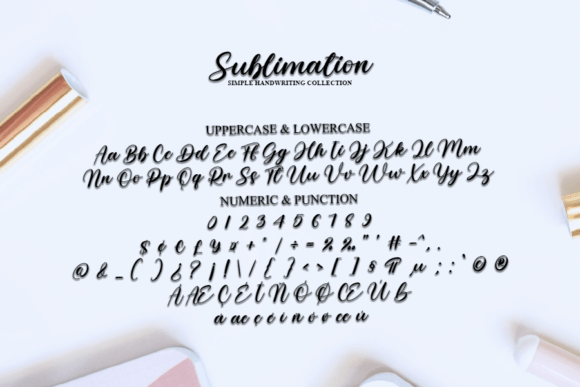 Sublimation
SIMPLE HANDWRITING COLLECTION
UPPERCASE & LOWERCASE
Aa Bb Cc Dd Ee Ff Gg Hh Ii Jj Kk Ll Mm
Nn Oo Pp Qq Rr Ss Tt Uu Vv Ww Xx Yy Zz
NUMERIC & PUNCTION
0 1 2 3 4 5 6 7 8 9
$ ¢ € £ ¥ ¤ + * / ÷ = % ‰ " ' # - ^ , .
@ & _ ( ) ¿ ? ¡ ! \ / { } < > [ ] § ¶ µ ; : ` © ®
À Æ Ç É Í Ñ Ó Ø Œ Ú ß
à æ ç é í ñ ó ø œ ú